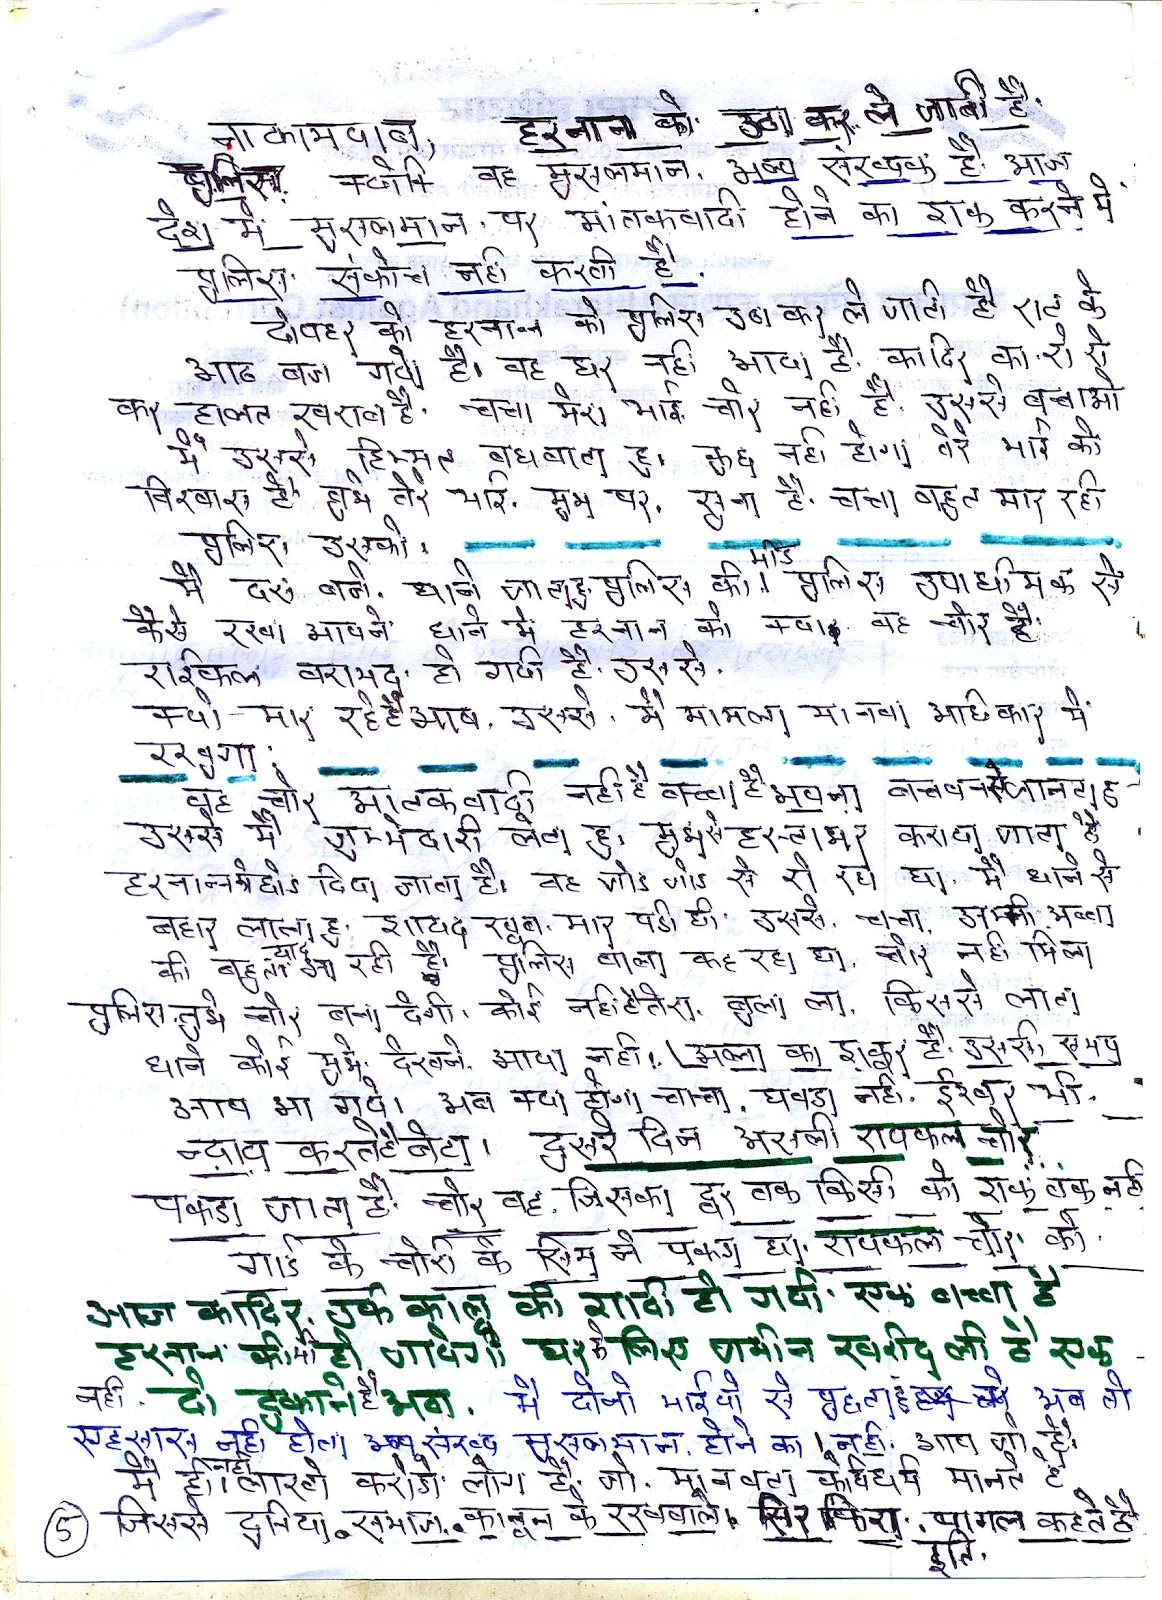 नाकामयाब, हसनान को उठा कर ले जाती है.
पुलिस. क्योंकि वह मुसलमान. अल्प संख्यक है. आज
देश में मुसलमान. पर आंतकवादी होने का शक करने में
पुलिस. संकोच नही करती है.
दोपहर को हसनान को पुलिस उठा कर ले जाती है रात के
आठ बज गये है. वह घर नही आया है. कादिर का रो रो
कर हालत खराब है. चच्चा मेरा भाई चोर नही है उससे बचाओ
में उससे हिम्मत बधवाता हु. कुछ नही होगा तेरे भाई को
विस्वास है मुझे तेरे भाई. मुझ पर. सुना है. चच्चा बहुत मार रही
पुलिस. उसको.
मै दस बजे. थाने जाता हु पुलिस की! पुलिस उपाधीक्षक से
कैसे रखा आपने थाने में हसनान को क्या. वह चोर है.
साईकल बरामद हो गयी है. उससे.
क्यो मार रहे है आप. उससे. मै मामला मानवा अधिकार में
रखुगा.
वह चोर आतकवादी नही है बच्चा है अपना बचपन से जानता हु
उससे मै जुम्मेदारी लेता हु. मुझसे हस्ताक्षर कराया जाता है
हसनान को छोड दिया जाता है. वह जोड जोड से रो रहा था. मै थाने से
बहार लाता हु. शायद खूब मार पडी थी. उससे. चच्चा. अम्मी अब्बा
की बहुत याद आ रही है. पुलिस वाला कह रहा था. चोर नही मिला
पुलिस. तुझे चोर बना देगी. कोई नही है तेरा. बुला ला. किससे लाता
थाने कोई मुझे देखने आया नही. अल्ला का शुकर है. उससे समय
आप आ गये. अब क्या होगा चाचा. घबडा नही. ईश्वर भी.
न्याय करते है बेटा. दुसरे दिन असली सायकल चोर
पकडा जाता है. चोर वह. जिसका दूर तक किसी को शक तक नही
गार्ड के चोरी के में पकडा था. सायकल चोर को.
आज कादिर. उर्फ कालू की शादी हो गयी. एक बच्चा है
हसनान की भी हो जायेगी घर के लिए जमीन खरीद ली है एक
नही. दो दुकाने है अब. मै दोनो भाईयो से पुछता हु अब तो
एहसास नही होता अल्प संख्यक मुसलमान. होने का! नही. आप जो है.
मै ही नही लाखो करोडो लोग है. जो. मानवता को धर्म मानते है
जिससे दुनिया. समाज. कानून के रखवाले. सिर फिरा. पागल कहते है
इति.
5